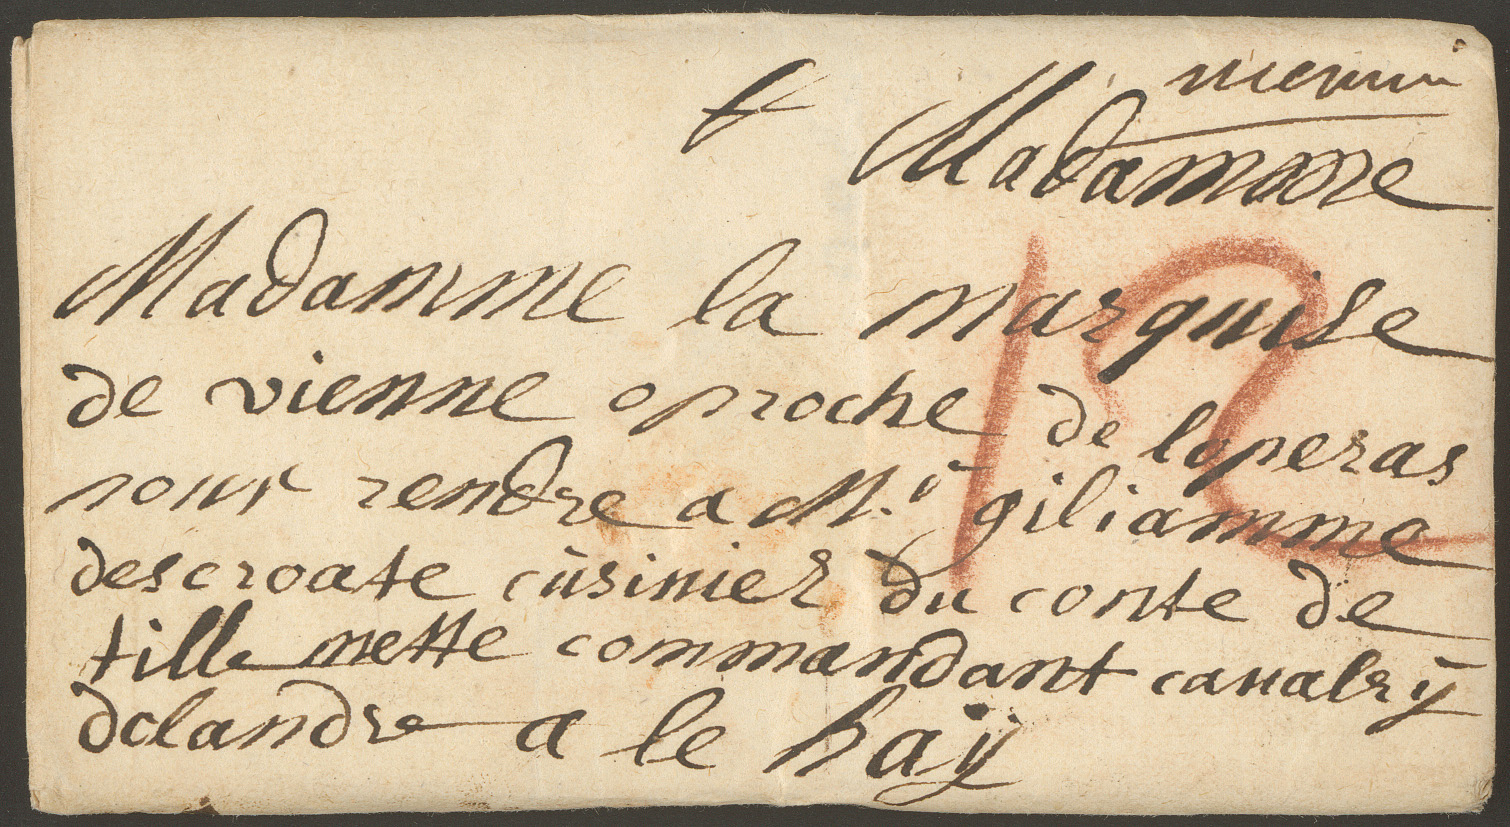 menin
Madamme
Madamme la marquise
de vienne oproche de loperas
pour rendre a M.r giliamme
descroate cüsinier du conte de
tille nette commandant cavalrÿ
dolandre a le haÿ
12